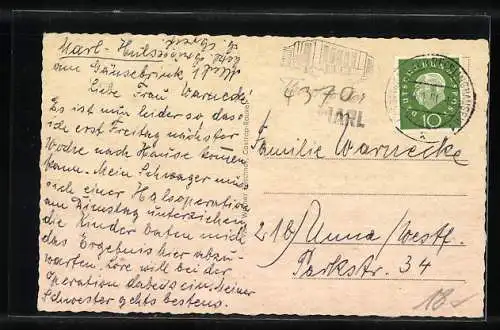 Marl-Hüls
am Gänsebrink
Liebe Frau Warnecke!
Es ist nun leider so das
ich erst Freitag nächster
Woche nach Hause kommen
kann. Mein Schwager muss
sich einer Halsoperation
am Dienstag unterziehen
die Kinder baten mich
das Ergebnis hier abzu-
warten. Lore will bei der
Operation dabei sein. Meiner
Schwester gehts bestens.
MARL
DEUTSCHE BUNDESPOST
10
Familie Warnecke
21b) Unna/Westf.
Parkstr. 34
18.-